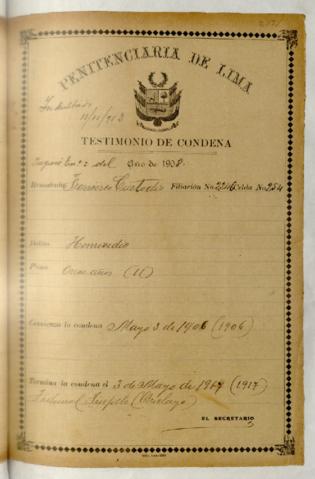 PENITENCIARIA DE LIMA
TESTIMONIO DE CONDENA
Enº 2 del Año de 1908.
Francisco Custodio Filiación No. 2246 Celda No. 254
Delito Homicidio
Pena Once años (11)
Comienza la condena Mayo 3 de 1906 (1906)
Termina la condena el 3 de Mayo de 1917 (1917)
Tribunal
EL SECRETARIO